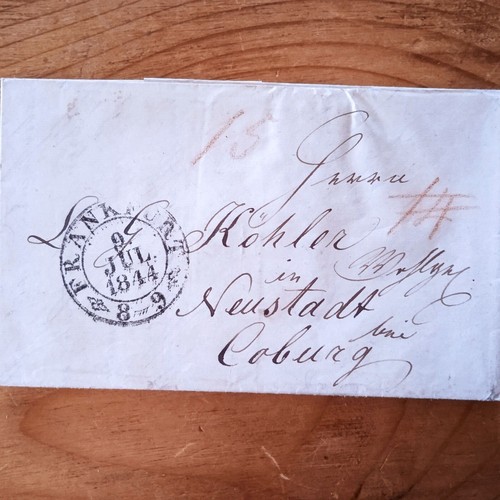 15
Herrn
14
L. C. Köhler
Wohlgeb.
in
Neustadt
bei
Coburg
FRANKFURT
9
JUL
1844
8-9